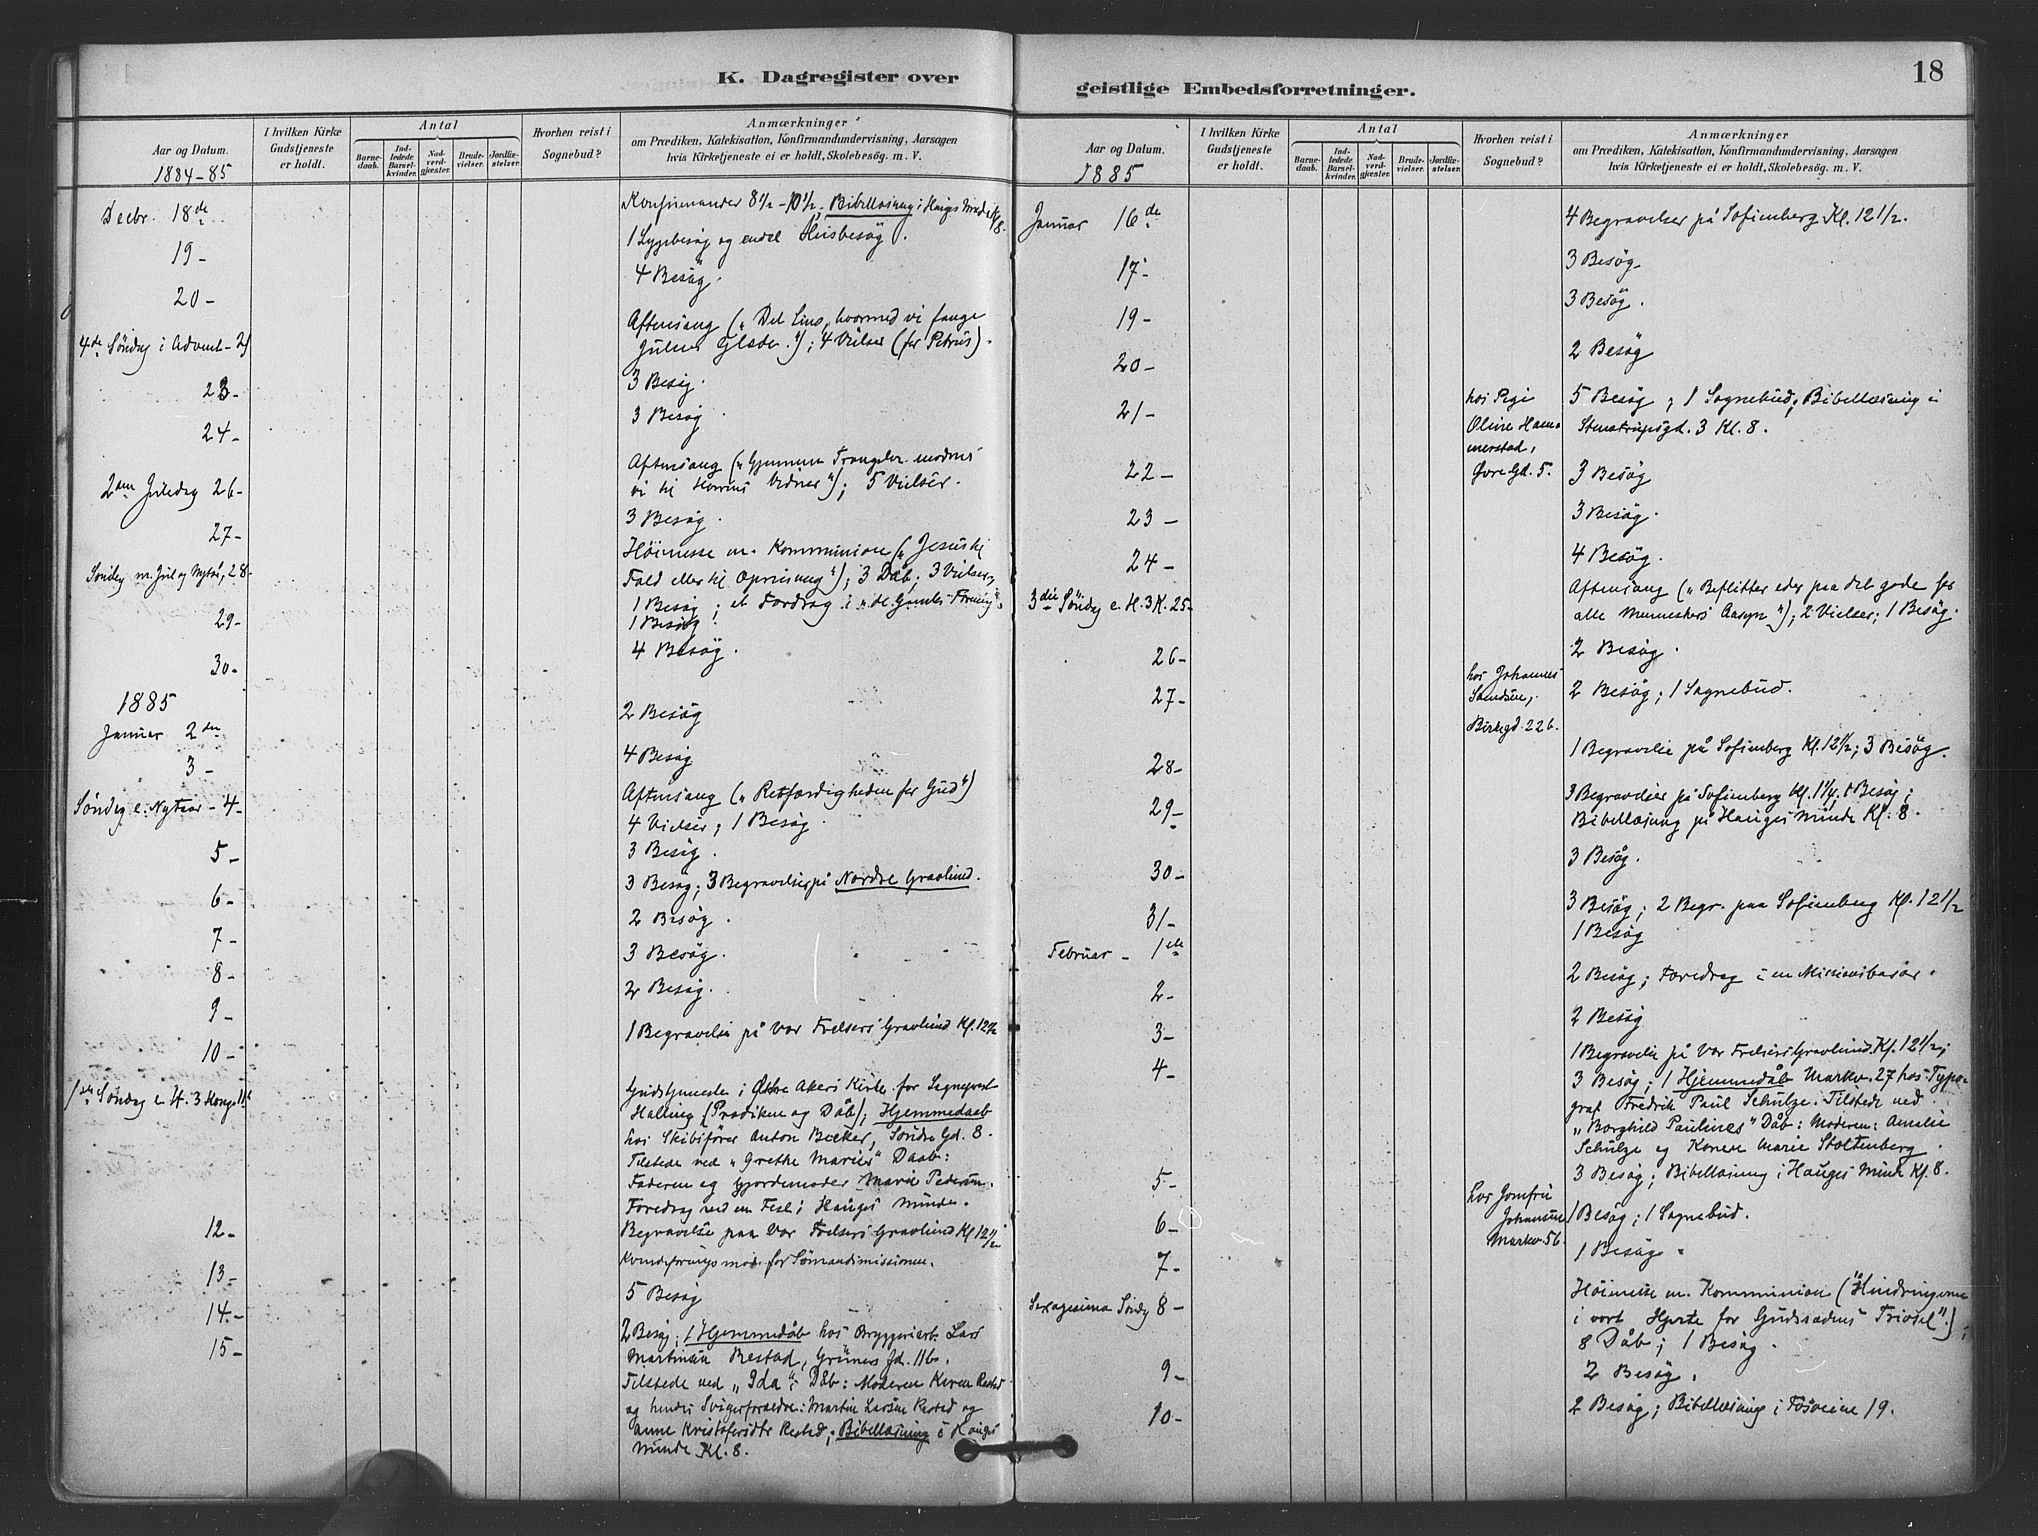 K. Dagregister over
Aar og Datum.
1884-85
I hvilken Kirke Gudstjeneste er holdt.
Antal
Barnedaab.
Indledede Barselkvinder.
Nadverdgjæster.
Brudevielser.
Jordfæstelser.
Hvorhen reist i Sognebud?
Anmærkninger
om Prædiken, Katekisation, Konfirmandundervisning, Aarsagen
hvis Kirketjeneste ei er holdt, Skolebesøg. m. V.
Decbr. 18de
Konfirmander 8½-10½; Bibellæsning i Hauges Minde Kl 8.
1 Sygebesøg og endel Husbesøg.
19-
4 Besøg.
20-
4de Søndag i Advent-21
Aftensang („Det Sind, hvormed vi fange
Julens Glæde."); 4 Vielser (for Petrus).
23-
3 Besøg.
24-
3 Besøg
2den Juledag 26-
Aftensang („Gjennem Trængsler modnes
vi til Herrens Vidner"); 5 Vielser.
27-
3 Besøg.
Søndag m. Jul og Nytår, 28-
Høimesse m. Kommunion („Jesus til
Fald eller til Opreisning"); 3 Dåb; 3 Vielser,
1 Besøg; et Foredrag i
29-
1 Besøg.
30-
4 Besøg.
1885
Januar 2den
2 Besøg
3-
4 Besøg
Søndag e. Nytaar-4-
Aftensang („Retfærdigheden for Gud")
4 Vielser; 1 Besøg.
5-
3 Besøg.
6-
3 Besøg; 3 Begravelser på Nordre Gravlund.
7-
2 Besøg.
8-
3 Besøg.
9-
2 Besøg.
10-
1 Begravelse på Vor Frelsers Gravlund Kl. 12½
1ste Søndag e. H. 3 Konger 11te
Gudstjeneste i Østre Akers Kirke for Sognepræst
Halling (Prædiken og Dåb); Hjemmedaab
hos Skibsfører Anton Becker, Søndre Gd. 8.
Tilstede ved „Grethe Maries" Daab:
Faderen og Gjordemoder Marie Pedersen.
Foredrag ved en Fest i Hauges Minde.
12-
Begravelse paa Vor Frelsers Gravlund Kl 12½
13-
Kvindeforeningsmøde for Sømandsmissionen.
14-
5 Besøg
15-
2 Besøg; 1 Hjemmedåb hos Bryggeriarb. Lars
Martinsen Restad, Grüners Gd. 11b.
Tilstede ved „Ida"s Dåb: Moderen Karen Restad
og hendes Svigerforældre: Martin Larsen Restad og
Anne Kristofersdtr Restad; Bibellæsning i Hauges
Minde Kl. 8.
geistlige Embedsforretninger.
18
Aar og Datum.
1885
I hvilken Kirke Gudstjeneste er holdt.
Antal
Barnedaab.
Indledede Barselkvinder.
Nadverdgjæster.
Brudevielser.
Jordfæstelser.
Hvorhen reist i Sognebud?
Anmærkninger
om Prædiken, Katekisation, Konfirmandundervisning, Aarsagen
hvis Kirketjeneste ei er holdt, Skolebesøg. m. V.
Januar 16de
4 Begravelser på Sofienberg Kl. 12½.
17-
3 Besøg
19-
3 Besøg.
20-
2 Besøg
21-
hos Pige
Oline Hammerstad,
Øvre Gd. 5.
5 Besøg; 1 Sognebud; Bibellæsning i
Stenstrupsgd. 3 Kl. 8.
22-
3 Besøg
23-
3 Besøg.
24-
4 Besøg.
3die Søndag e. H. 3 K. 25-
Aftensang („Beflitter eder paa det gode for
alle Menneskers Aasyn"); 2 Vielser; 1 Besøg.
26-
2 Besøg.
27-
hos Johannes
Birkegd. 22b.
2 Besøg; 1 Sognebud.
28-
1 Begravelse på Sofienberg Kl. 12½; 3 Besøg.
29-
3 Begravelser på Sofienberg Kl. 1¼; 1 Besøg;
Bibellæsning på Hauges Minde Kl. 8.
30-
3 Besøg.
31-
3 Besøg; 2 Begr. paa Sofienberg Kl. 12½
Februar - 1ste
1 Besøg
2-
2 Besøg; Foredrag i en Missionsbasar.
3-
2 Besøg
4-
1 Begravelse på Vor Frelsers Gravlund Kl. 12½;
3 Besøg; 1 Hjemmedåb Markv. 27 hos Typograf Fredrik Paul Schulze. Tilstede ved
„Borghild Paulines" Dåb: Moderen: Amalie
Schulze og Konen Marie Stoltenberg.
5-
3 Besøg; Bibellæsning i Hauges Minde Kl. 8.
6-
hos Jomfru
Johansen
Markv. 56.
1 Besøg; 1 Sognebud.
7-
1 Besøg.
Sexagesima Søndag 8-
Høimesse m. Kommunion ("Hindringerne
i vort Hjerte for Gudssædens Trivsel");
8 Dåb; 1 Besøg.
9-
2 Besøg.
10-
2 Besøg; Bibellæsning i Fosveien 19.